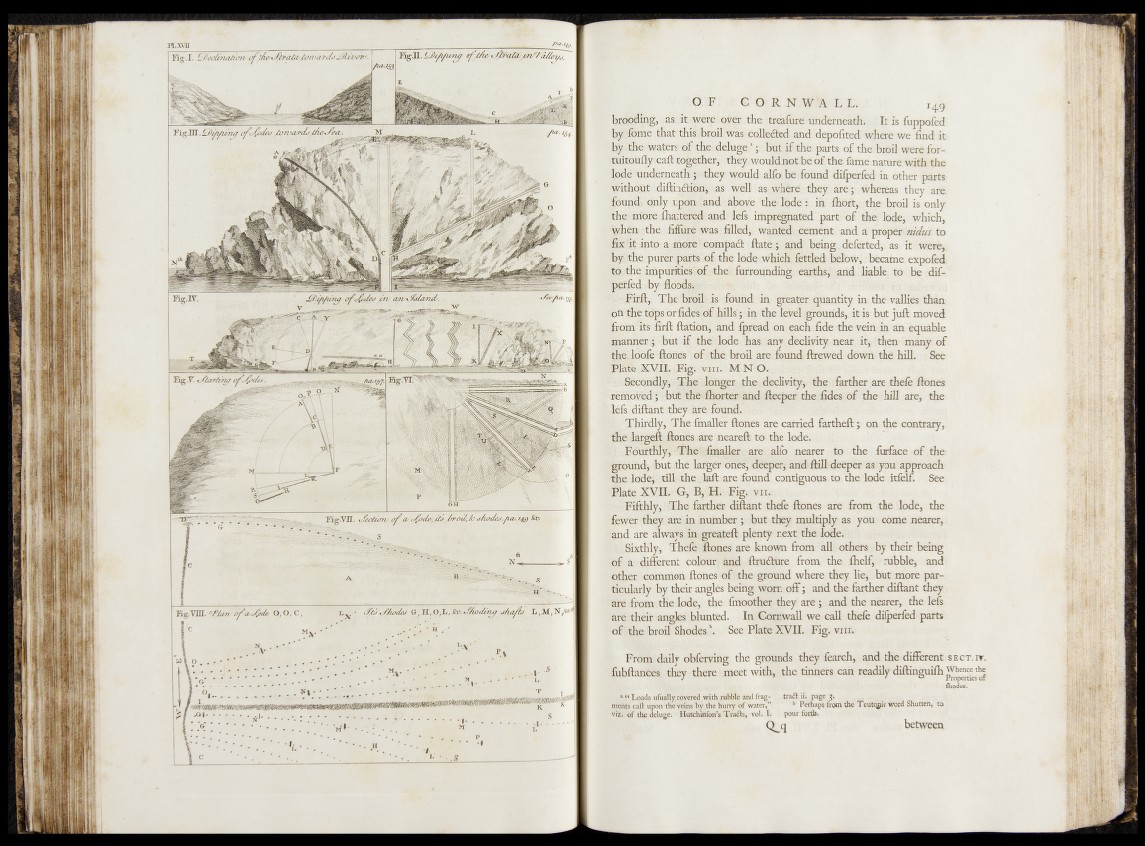 Pl. XVII
pa. 149
Fig. I. Declination of the Strata towards River.
pa. 153
Fig. II. Dipping of the Strata in Valleys.
Fig. III. Dipping of Lodes towards the Sea.
pa. 154
Fig. IV.
Dipping of Lodes in an Island.
See pa.
Fig. V. Starting of Lodes.
pa. 157.
Fig. VI.
Fig. VII. Section of a Lode, its broil, & shodes pa. 149 &c.
Fig. VIII. Plan of a Lode O, O, C,
Its Shodes G, H, O, L, &c. Shoding shafts L, M, N,
OF CORNWALL. 149
brooding, as it were over the treaſure underneath. It is ſuppoſed
by ſome that this broil was collected and depoſited where we find it
by the waters of the deluge ª; but if the parts of the broil were for-
tuitouſly caſt together, they would not be of the ſame nature with the
lode underneath; they would alſo be found diſperſed in other parts
without diſtinction, as well as where they are; whereas they are
found only upon and above the lode: in ſhort, the broil is only
the more ſhattered and leſs impregnated part of the lode, which,
when the fiſſure was filled, wanted cement and a proper nidus to
fix it into a more compact ſtate; and being deſerted, as it were,
by the purer parts of the lode which ſettled below, became expoſed
to the impurities of the ſurrounding earths, and liable to be diſ-
perſed by floods.
Firſt, The broil is found in greater quantity in the vallies than
on the tops or ſides of hills; in the level grounds, it is but juſt moved
from its firſt ſtation, and ſpread on each ſide the vein in an equable
manner; but if the lode has any declivity near it, then many of
the looſe ſtones of the broil are found ſtrewed down the hill. See
Plate XVII. Fig. VIII. M N O.
Secondly, The longer the declivity, the farther are theſe ſtones
removed; but the ſhorter and ſteeper the ſides of the hill are, the
leſs diſtant they are found.
Thirdly, The ſmaller ſtones are carried fartheſt; on the contrary,
the largeſt ſtones are neareſt to the lode.
Fourthly, The ſmaller are alſo nearer to the ſurface of the
ground, but the larger ones, deeper, and ſtill deeper as you approach
the lode, till the laſt are found contiguous to the lode itſelf. See
Plate XVII. G, B, H. Fig. VII.
Fifthly, The farther diſtant theſe ſtones are from the lode, the
fewer they are in number; but they multiply as you come nearer,
and are always in greateſt plenty next the lode.
Sixthly, Theſe ſtones are known from all others by their being
of a different colour and ſtructure from the ſhelf, rubble, and
other common ſtones of the ground where they lie, but more par-
ticularly by their angles being worn off; and the farther diſtant they
are from the lode, the ſmoother they are; and the nearer, the leſs
are their angles blunted. In Cornwall we call theſe diſperſed parts
of the broil Shodes ᵇ. See Plate XVII. Fig. VIII.
From daily obſerving the grounds they ſearch, and the different SECT. IV.
ſubſtances they there meet with, the tinners can readily diſtinguiſh Whence the
Properties of
ſhodes.
ª "Loads uſually covered with rubble and frag-
ments caſt upon the veins by the hurry of water,"
viz. of the deluge. Hutchinſon's Tracts, vol. I.
tract ii. page 3.
ᵇ Perhaps from the Teutonic word Shutten, to
pour forth.
Q q
between